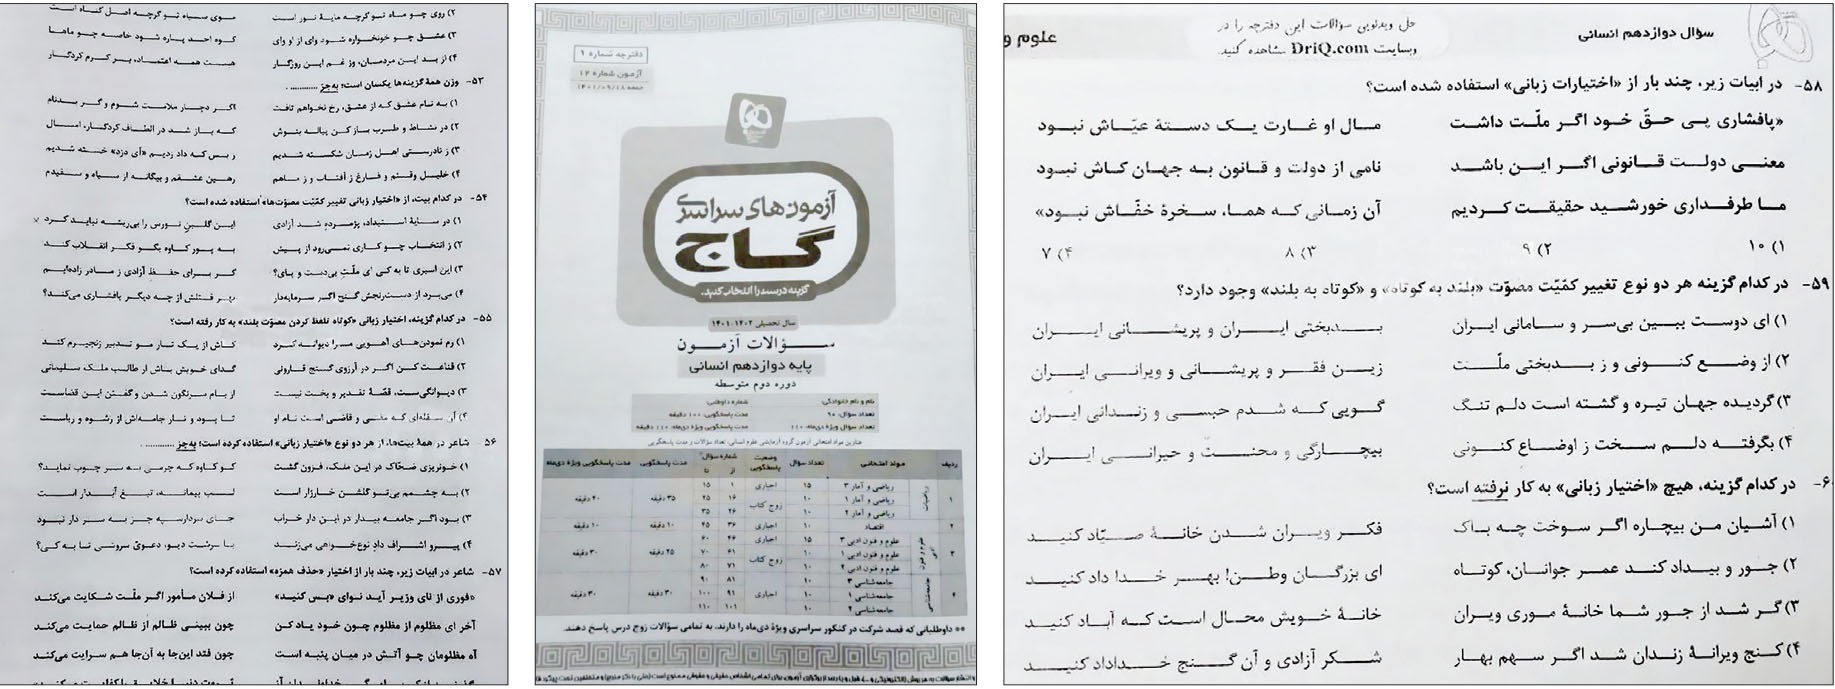 ۲) روی چو ماه تو گرچه مایهٔ نور است
موی سیاه تو گرچه اصل گناه است
۳) عشق چو خونخواره شود وای از او وای
کوه احد پاره شود خاصه چو ماها
۴) از بد این مردمان، وز غم این روزگار
هست همه اعتماد، بر کرم کردگار
۵۳- وزن همهٔ گزینه‌ها یکسان است؛ به‌جز ............ .
۱) به نام عشق که از عشق، رخ نخواهم تافت
اگر دچار ملامت شوم و گر بدنام
۲) در نشاط و طرب باز کن پیاله بنوش
که باز شد در الطاف کردگار، امسال
۳) ز نادرستی اهل زمان شکسته شدیم
ز بس که داد زدیم «آی دزد» خسته شدیم
۴) خلیل وقتم و فارغ ز آفتاب و ز ماهم
رهین عشقم و بیگانه از سیاه و سفیدم
۵۴- در کدام بیت، از «اختیار زبانی تغییر کمّیّت مصوّت‌ها» استفاده شده است؟
۱) در سایهٔ استبداد، پژمرده شد آزادی
این گلبن نورس را بی‌ریشه نباید کرد
۲) ز انتخاب چو کاری نمی‌رود از پیش
به پور کاوه بگو فکر انقلاب کند
۳) این اسیری تا به کی ای ملّتِ بی‌دست و پای؟
گر برای حفظ آزادی ز مادر زاده‌ایم
۴) می‌برد از دست‌رنجش گنج اگر سرمایه‌دار
بهر قتلش از چه دیگر پافشاری می‌کند؟
۵۵- در کدام گزینه، اختیار زبانی «کوتاه تلفظ کردن مصوّت بلند» به کار رفته است؟
۱) رم نمودن‌های آهویی مرا دیوانه کرد
کاش از یک تار مو تدبیر زنجیرم کند
۲) قناعت کن اگر در آرزوی گنج قارونی
گدای خویش باش ار طالب ملک سلیمانی
۳) دیوانگی‌ست، قصّهٔ تقدیر و بخت نیست
از بام سرنگون شدن و گفتن این قضاست
۴) آن سفله‌ای که مفتی و قاضی است نام او
تا پود و تار جامه‌اش از رشوه و رباست
۵۶- شاعر در همهٔ بیت‌ها، از هر دو نوع «اختیار زبانی» استفاده کرده است؛ به‌جز ............ .
۱) خونریزی ضحّاک در این ملک، فزون گشت
کو کاوه که چرمی به سر چوب نماید؟
۲) به چشمم بی‌تو گلشن خارزار است
لب پیمانه، تیغ آبدار است
۳) بود اگر جامعه بیدار در این دار خراب
جای سردار سپه جز به سر دار نبود
۴) پیرو اشراف داد نوع‌خواهی می‌زند
با سرشت دیو، دعویّ سروشی تا به کی؟
۵۷- شاعر در ابیات زیر، چند بار از اختیار «حذف همزه» استفاده کرده است؟
«فوری از نای وزیر آید نوای «بس کنید»
از فلان مأمور اگر ملّت شکایت می‌کند
آخر ای مظلوم از مظلوم چون خود یاد کن
چون ببینی ظالم از ظالم حمایت می‌کند
آه مظلومان چو آتش در میان پنبه است
چون فتد این‌جا به آن‌جا هم سرایت می‌کند
دفترچه شماره ۱
آزمون شماره ۱۲
جمعه ۱۴۰۱/۰۹/۱۸
آزمون‌های سراسری
گاج
گزینه درست را انتخاب کنید.
سال تحصیلی ۱۴۰۲-۱۴۰۱
سؤالات آزمون
پایه دوازدهم انسانی
دوره دوم متوسطه
نام و نام خانوادگی:
شماره داوطلبی:
تعداد سؤال: ۹۰
مدت پاسخگویی: ۱۰۰ دقیقه
تعداد سؤال ویژه دی‌ماه: ۱۱۰
مدت پاسخگویی ویژه دی‌ماه: ۱۱۰ دقیقه
عناوین مواد امتحانی آزمون گروه آزمایشی علوم انسانی، تعداد سؤالات و مدت پاسخگویی
ردیف
مواد امتحانی
تعداد سؤال
وضعیت پاسخگویی
شماره سؤال
از
تا
مدت پاسخگویی
مدت پاسخگویی ویژه دی‌ماه
۱
ریاضیات
ریاضی و آمار ۳
۱۵
اجباری
۱
۱۵
۳۵ دقیقه
۴۰ دقیقه
ریاضی و آمار ۱
۱۰
زوج کتاب
۱۶
۲۵
ریاضی و آمار ۲
۱۰
۲۶
۳۵
۲
اقتصاد
۱۰
اجباری
۳۶
۴۵
۱۰ دقیقه
۱۰ دقیقه
۳
علوم و فنون ادبی
علوم و فنون ادبی ۳
۱۵
اجباری
۴۶
۶۰
۲۵ دقیقه
۳۰ دقیقه
علوم و فنون ادبی ۱
۱۰
زوج کتاب
۶۱
۷۰
علوم و فنون ادبی ۲
۱۰
۷۱
۸۰
۴
جامعه‌شناسی
جامعه‌شناسی ۳
۱۰
اجباری
۸۱
۹۰
۳۰ دقیقه
۳۰ دقیقه
جامعه‌شناسی ۱
۱۰
۹۱
۱۰۰
جامعه‌شناسی ۲
۱۰
۱۰۱
۱۱۰
** داوطلبانی که قصد شرکت در کنکور سراسری ویژهٔ دی‌ماه را دارند، به تمامی سؤالات زوج درس پاسخ دهند.
سؤال دوازدهم انسانی
حل ویدئویی سؤالات این دفترچه را در
وبسایت DriQ.com مشاهده کنید.
علوم و
۵۸- در ابیات زیر، چند بار از «اختیارات زبانی» استفاده شده است؟
«پافشاری پی حقّ خود اگر ملّت داشت
مال او غارت یک دستهٔ عیّاش نبود
معنی دولت قانونی اگر این باشد
نامی از دولت و قانون به جهان کاش نبود
ما طرفداری خورشید حقیقت کردیم
آن زمانی که هما، سخرهٔ خفّاش نبود»
۱) ۱۰
۲) ۹
۳) ۸
۴) ۷
۵۹- در کدام گزینه هر دو نوع تغییر کمّیّت مصوّت «بلند به کوتاه» و «کوتاه به بلند» وجود دارد؟
۱) ای دوست ببین بی‌سر و سامانی ایران
بدبختی ایران و پریشانی ایران
۲) از وضع کنونی و ز بدبختی ملّت
زین فقر و پریشانی و ویرانی ایران
۳) گردیده جهان تیره و گشته است دلم تنگ
گویی که شدم حبسی و زندانی ایران
۴) بگرفته دلم سخت ز اوضاع کنونی
بیچارگی و محنت و حیرانی ایران
۶۰- در کدام گزینه، هیچ «اختیار زبانی» به کار نرفته است؟
۱) آشیان من بیچاره اگر سوخت چه باک
فکر ویران شدن خانهٔ صیّاد کنید
۲) جور و بیداد کند عمر جوانان، کوتاه
ای بزرگان وطن! بهر خدا داد کنید
۳) گر شد از جور شما خانهٔ موری ویران
خانهٔ خویش محال است که آباد کنید
۴) کنج ویرانهٔ زندان شد اگر سهم بهار
شکر آزادی و آن گنج خداداد کنید